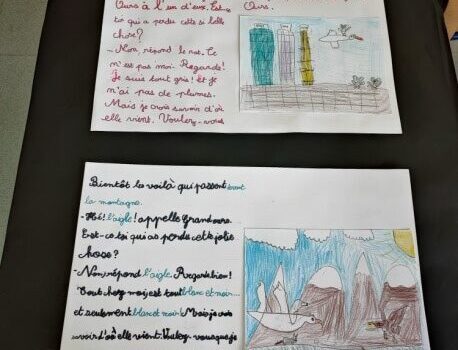 Ours à l'un d'eux. Est-ce
to qui a perdu cette si belle
chose?
- Non répond le rat. Ce
n'est pas moi. Regarde!
Je suis tout gris! Et je
n'ai pas de plumes.
Mais je crois savoir d'où
elle vient. Voulez-vous
Ours.
Bientôt les voilà qui passent devant
la montagne.
- Hé! l'aigle! appelle Grand ours.
Est-ce toi qui as perdu cette jolie
chose?
- Non, répond l'aigle. Regarde bien!
Tout chez moi est tout blanc et noir...
et seulement blanc et noir! Mais je crois
savoir d'où elle vient. Voulez-vous que je